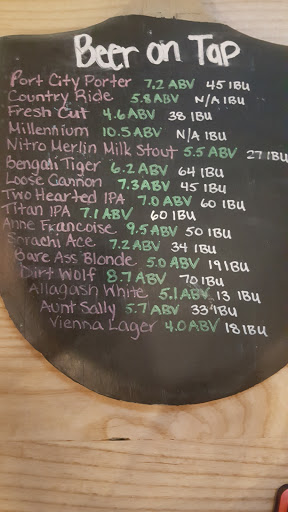 Beer on Tap
Port City Porter 7.2 ABV 45 IBU
Country Ride 5.8 ABV N/A IBU
Fresh Cut 4.6 ABV 38 IBU
Millennium 10.5 ABV N/A IBU
Nitro Merlin Milk Stout 5.5 ABV 27 IBU
Bengali Tiger 6.2 ABV 64 IBU
Loose Cannon 7.3 ABV 45 IBU
Two Hearted IPA 7.0 ABV 60 IBU
Titan IPA 7.1 ABV 60 IBU
Anne Francoise 9.5 ABV 50 IBU
Sorachi Ace 7.2 ABV 34 IBU
Bare Ass Blonde 5.0 ABV 19 IBU
Dirt Wolf 8.7 ABV 70 IBU
Allagash White 5.1 ABV 13 IBU
Aunt Sally 5.7 ABV 33 IBU
Vienna Lager 4.0 ABV 18 IBU